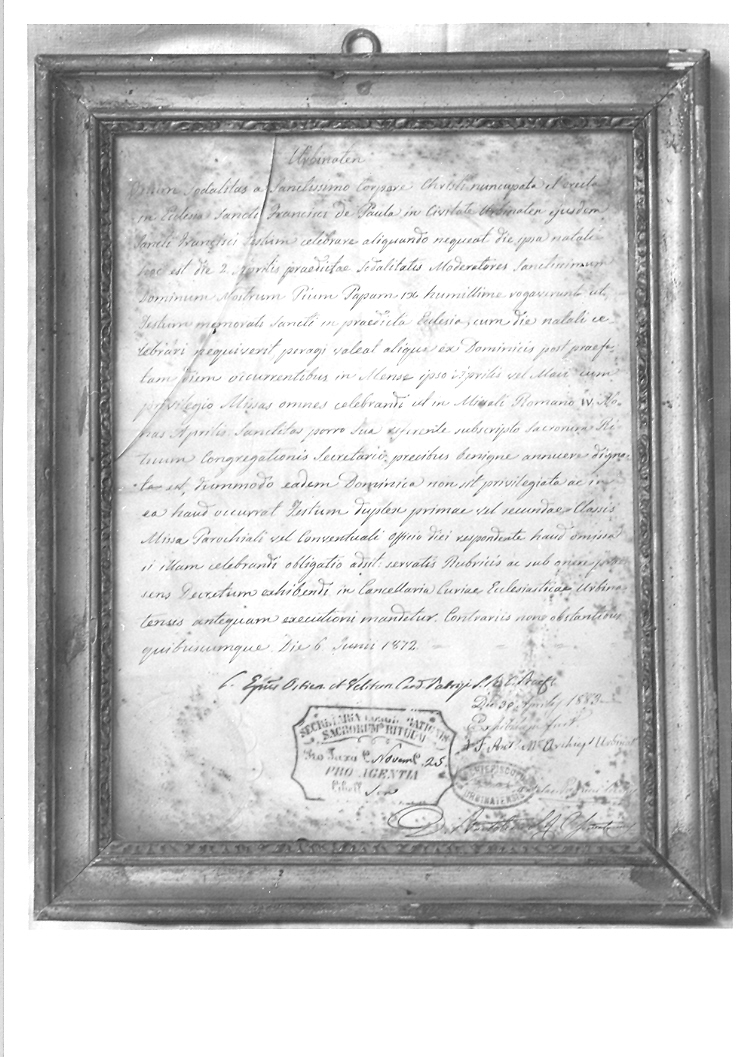 Urbinaten
Quum Sodalitas a Sanctissimo Corpore Christi nuncupata et erecta
in Eclesia Sancti Francisci de Paula in Civitate Urbinaten ejusdem
Sancti Francisci Festum celebrare aliquando nequeat die ipsa natali
hoc est die 2 Aprilis praedictae Sodalitatis Moderatores Sanctissimum
Dominum Nostrum Pium Papam IX humillime rogaverunt ut
Festum memorati Sancti in praedicta Ecclesia, cum die natali ce-
lebrari nequiverit peragi valeat aliqua ex Dominicis post praefa-
tam diem occurrentibus in Mense ipso Aprilis vel Maii cum
privilegio Missas omnes celebrandi ut in Missali Romano IV No-
nas Aprilis. Sanctitas porro Sua referente subscripto Sacrorum Ri-
tuum Congregationis Secretario, precibus benigne annuere digna-
ta est, dummodo eadem Dominica non sit privilegiata ac in
ea haud occurrat Festum duplex primae vel secundae Classis
Missa Parochiali vel Conventuali officio diei respondente haud omissa
si illam celebrandi obligatio adsit: servatis Rubricis ac sub onere prae-
sens Decretum exhibendi in Cancellaria Curiae Ecclesiasticae Urbina-
tensis antequam executioni mandetur. Contrariis non obstantibus
quibuscumque. Die 6 Junii 1872
C. Epus Ostien et Velitern Card. Patrizi S. R. C. Praef.
Die 30 Aprilis 1883
Exhibitum fuit
SECRETARIA CONGREGATIONIS
SACRORUM RITUUM
Pro Taxa Novem 25
PRO AGENTIA
URBINATENSIS